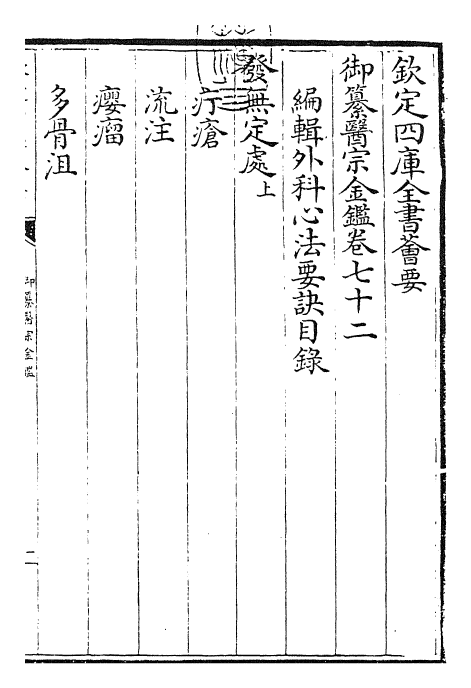 欽定四庫全書薈要
御纂醫宗金鑑卷七十二
編輯外科心法要訣目錄
發無定處上
疔瘡
流注
癭瘤
多骨疽
御纂醫宗金鑑